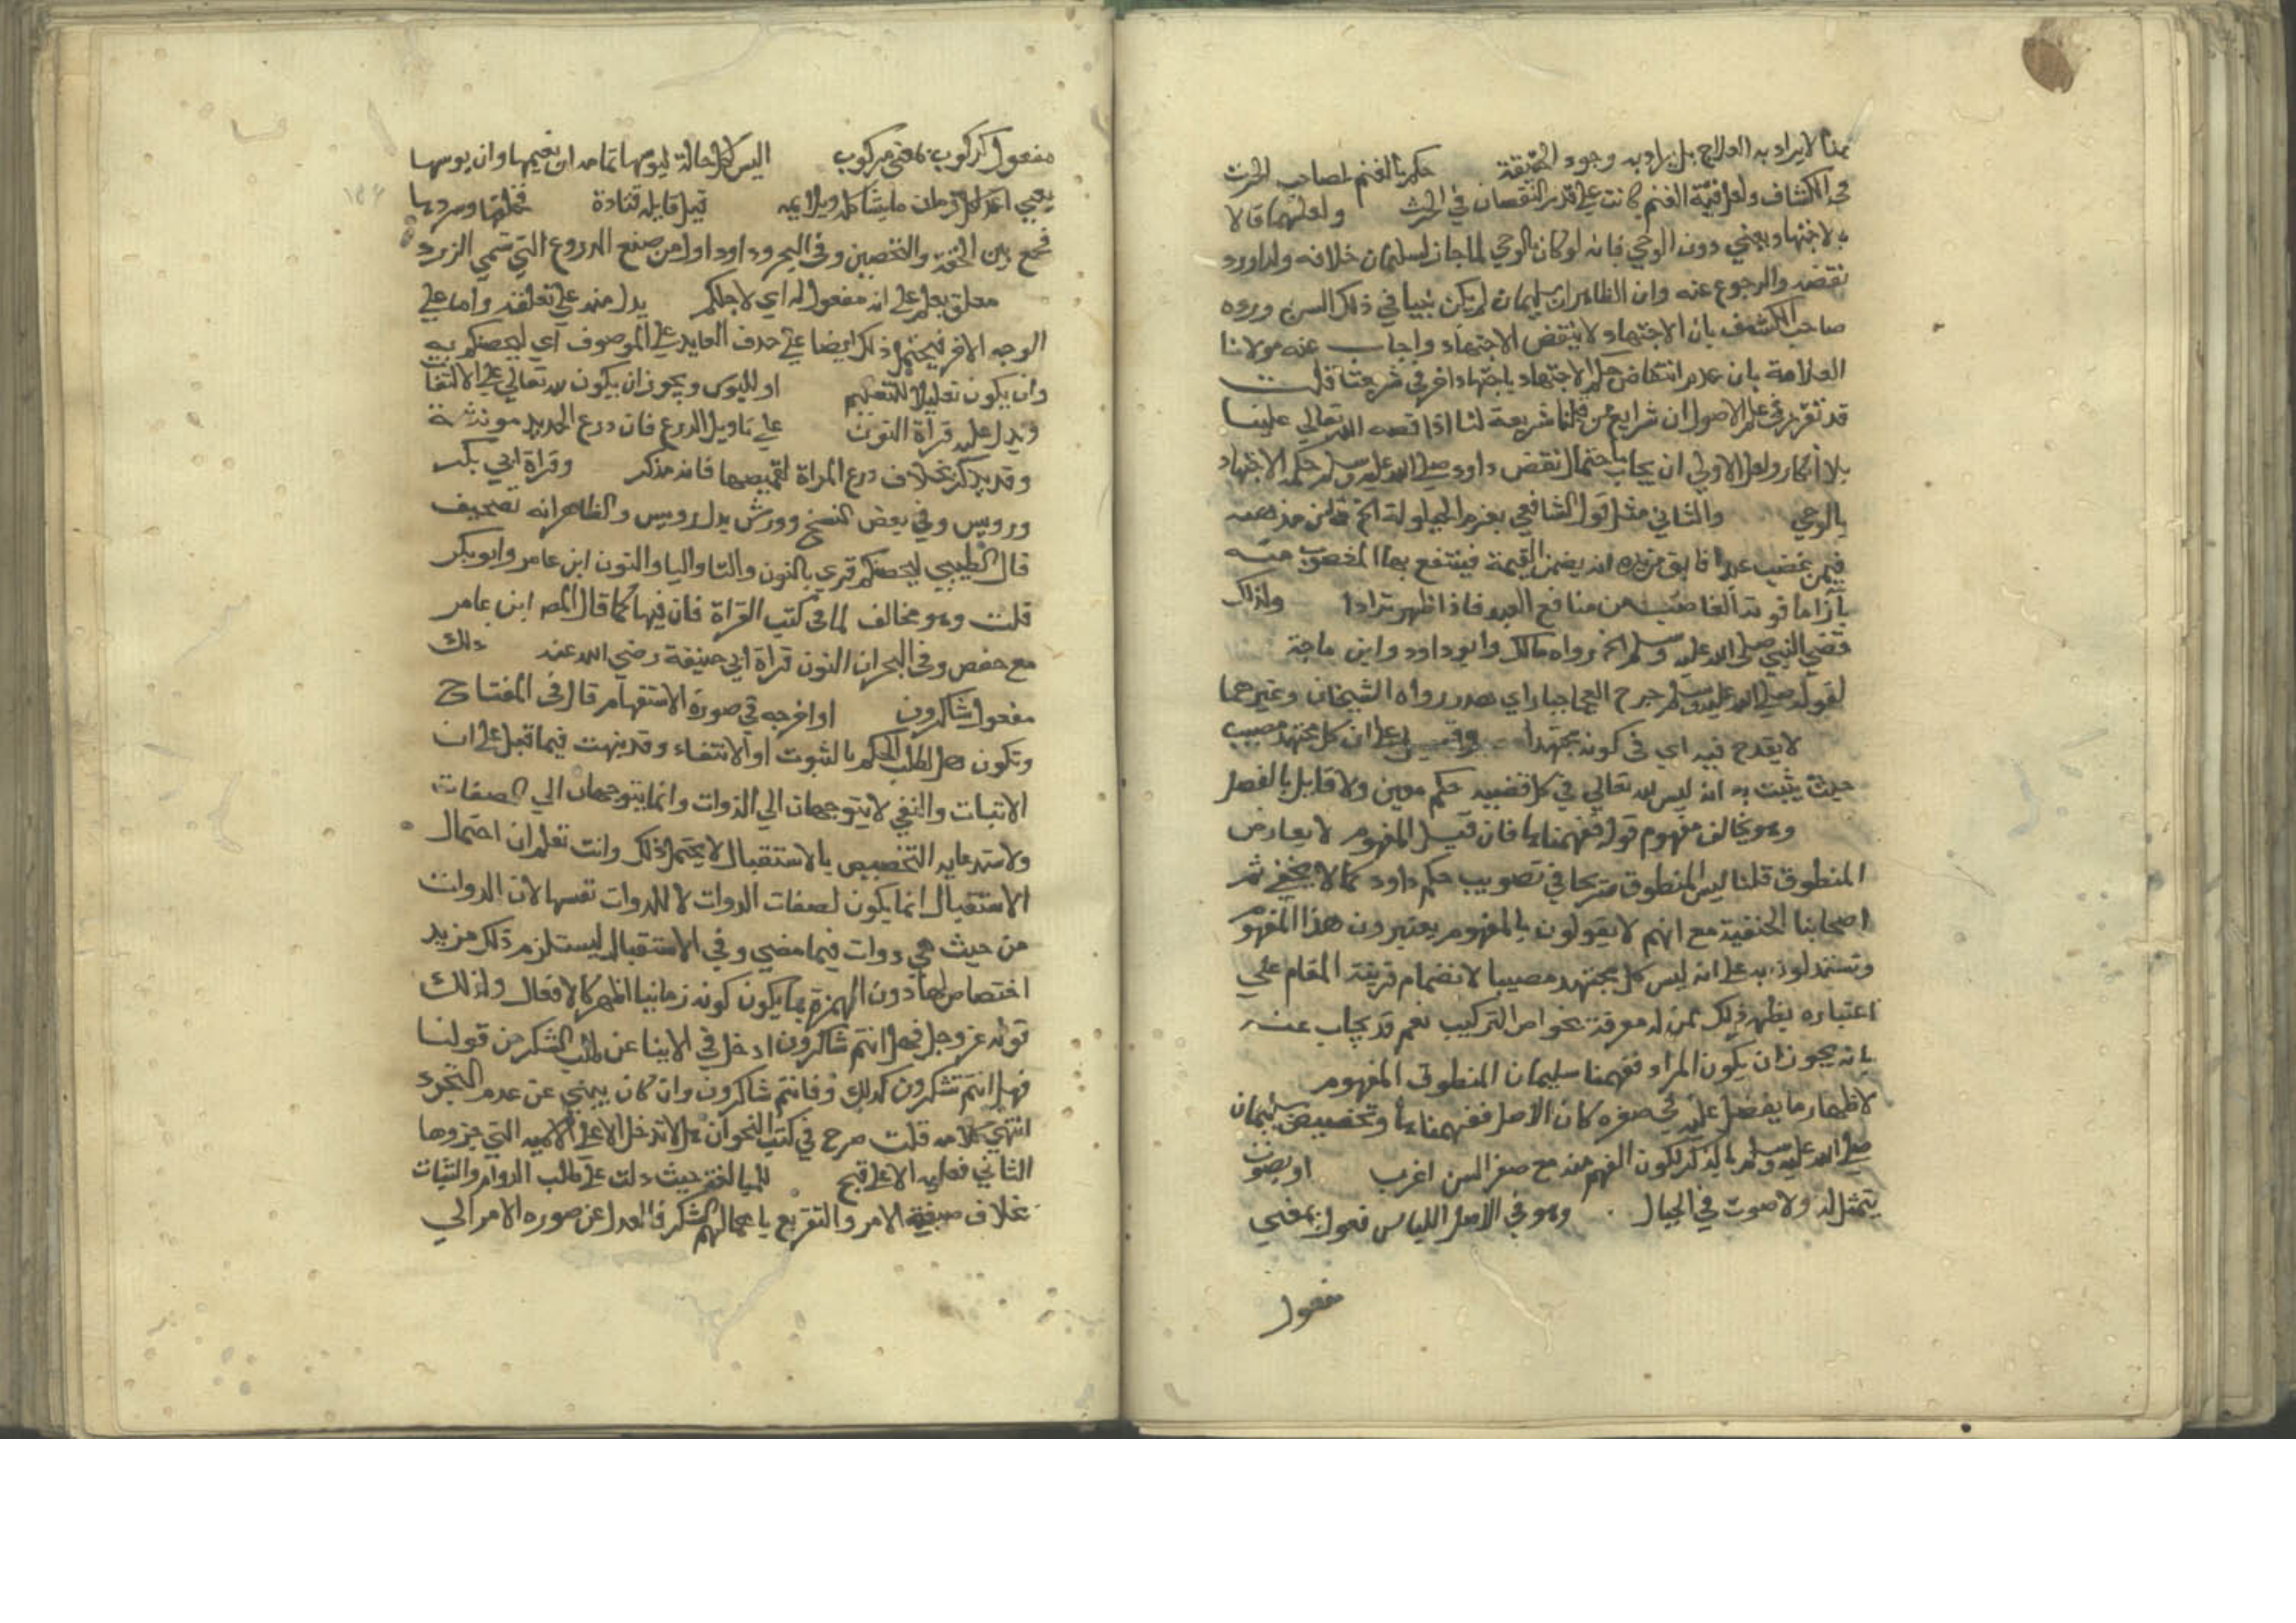 هذا لا يراد به العلاج بل يراد به وجود الحقيقة حكم بالغنم لصاحب الحرث
في الكشاف ولعل قيمة الغنم كانت على قدر النقصان في الحرث ولعلهما قالا
بالاجتهاد يعني دون الوحي فانه لو كان بالوحي لما جاز لسليمان خلافه ولداود
نقضه والرجوع عنه وان الظاهر ان سليمان لم يكن نبيا في ذلك السن ورده
صاحب الكشف بان الاجتهاد لا ينقض الاجتهاد واجاب عنه مولانا
العلامة بان عدم انتقاض حكم الاجتهاد باجتهاد اخر في شريعتنا قلت
قد تقرر في علم الاصول ان شرايع من قبلنا شريعة لنا اذا قصه الله تعالي علينا
بلا انكار ولعل الاولي ان يجاب باحتمال نقض داود صلى الله عليه وسلم حكم الاجتهاد
بالوحي والثاني مثل قول الشافعي بغرم الحيلولة الخ فان مذهبه
فيمن غصب عبدا فابق من يده انه يضمن القيمة فينتفع بها المغصوب منه
بازاء ما فوته الغاصب من منافع العبد فاذا ظهر ترادا ولذلك
قضى النبي صلى الله عليه وسلم الخ رواه مالك وابو داود وابن ماجة
لقوله صلى الله عليه وسلم جرح العجما جبار اي هدر رواه الشيخان وغيرهما
لا يقدح فيه اي في كونه مجتهدا وقيل على ان كل مجتهد مصيب
حيث يثبت به انه ليس لله تعالي في كل قضيه حكم معين ولا قايل بالفصل
وهو يخالف مفهوم قوله ففهمناها فان قيل المفهوم لا يعارض
المنطوق قلنا ليس المنطوق صريحا في تصويب حكم داود كما لا يخفي ثم
اصحابنا الحنفية مع انهم لا يقولون بالمفهوم يعتبرون هذا المفهوم
ويستدلون به على انه ليس كل مجتهد مصيبا لانضمام قرينة المقام علي
اعتباره يظهر ذلك لمن له معرفة بخواص التركيب نعم قد يجاب عنه
بانه يجوز ان يكون المراد ففهمنا سليمان المنطوق المفهوم
لاظهار ما يفضل عليه في صغره كان الاصل ففهمناها وتخصيص سليمان
صلى الله عليه وسلم بالذكر لكون الفهم منه مع صغر السن اغرب او بصوت
يتمثل له ولا صوت في الجبال وهو في الاصل اللباس فعول بمعني
مفعول
مفعول كركوب بمعني مركوب اليس لكل حالة لبوسها تمامه اما نعيمها واما بوسها
يعني اعد لكل زمان ما يشاكله ويلايمه قيل قايله قتادة فحلقها وسردها
فجمع بين الخفة والتحصين وفي البحر وداود اول من صنع الدروع التي تسمي الزرد
معلق بعلم على انه مفعول له اي لاجلكم بدل منه علي تعلقه واما علي
الوجه الاخر فيحتمل ذلك ايضا علي حذف العايد علي الموصوف اي لتحصنكم به
وان يكون تعليلا للتعليم او للبوس ويجوز ان يكون لله تعالي علي الالتفات
ويدل عليه قرأة النون علي تاويل الدرع فان درع الحديد مونثة
وقد يذكر بخلاف درع المراة لقميصها فانه مذكر وقراة ابي بكر
ورويس وفي بعض النسخ وورش بدل رويس والظاهر انه تصحيف
قال الطيبي ليحصنكم قري بالنون والتا واليا والنون ابن عامر وابو بكر
قلت وهو مخالف لما في كتب القراة فان فيها كما قال المص ابن عامر
مع حفص وفي البحر ان النون قراة ابي حنيفة رضي الله عنه ذلك
مفعول شاكرون او اخرجه في صورة الاستفهام قال في المفتاح
وتكون هل لطلب الحكم بالثبوت او الانتفاء وقد نبهت فيما قبل على ان
الاثبات والنفي لا يتوجهان الي الذوات وانما يتوجهان الي الصفات
ولاستدعايه التخصيص بالاستقبال لا يحتمل ذلك وانت تعلم ان احتمال
الاستقبال انما يكون لصفات الذوات لا للذوات نفسها لان الذوات
من حيث هي ذوات فيما مضي وفي الاستقبال ليستلزم ذلك مزيد
اختصاص لها دون الهمزة بما يكون كونه زمانيا اظهر كالافعال ولذلك
قوله عز وجل فهل انتم شاكرون ادخل في الانبا عن طلب الشكر من قولنا
فهل انتم تشكرون كذلك وفانتم شاكرون وان كان ينبي عن عدم التجدد
انتهي كلامه قلت صرح في كتب النحو ان هل لا تدخل الا على الاسمية التي جزوها
الثاني فعليه الا على قبح للمبالغة حيث دلت على طلب الدوام والثبات
بخلاف صيغة الامر والتقريع باعمالهم الشكر فالعدل عن صوره الامر الي